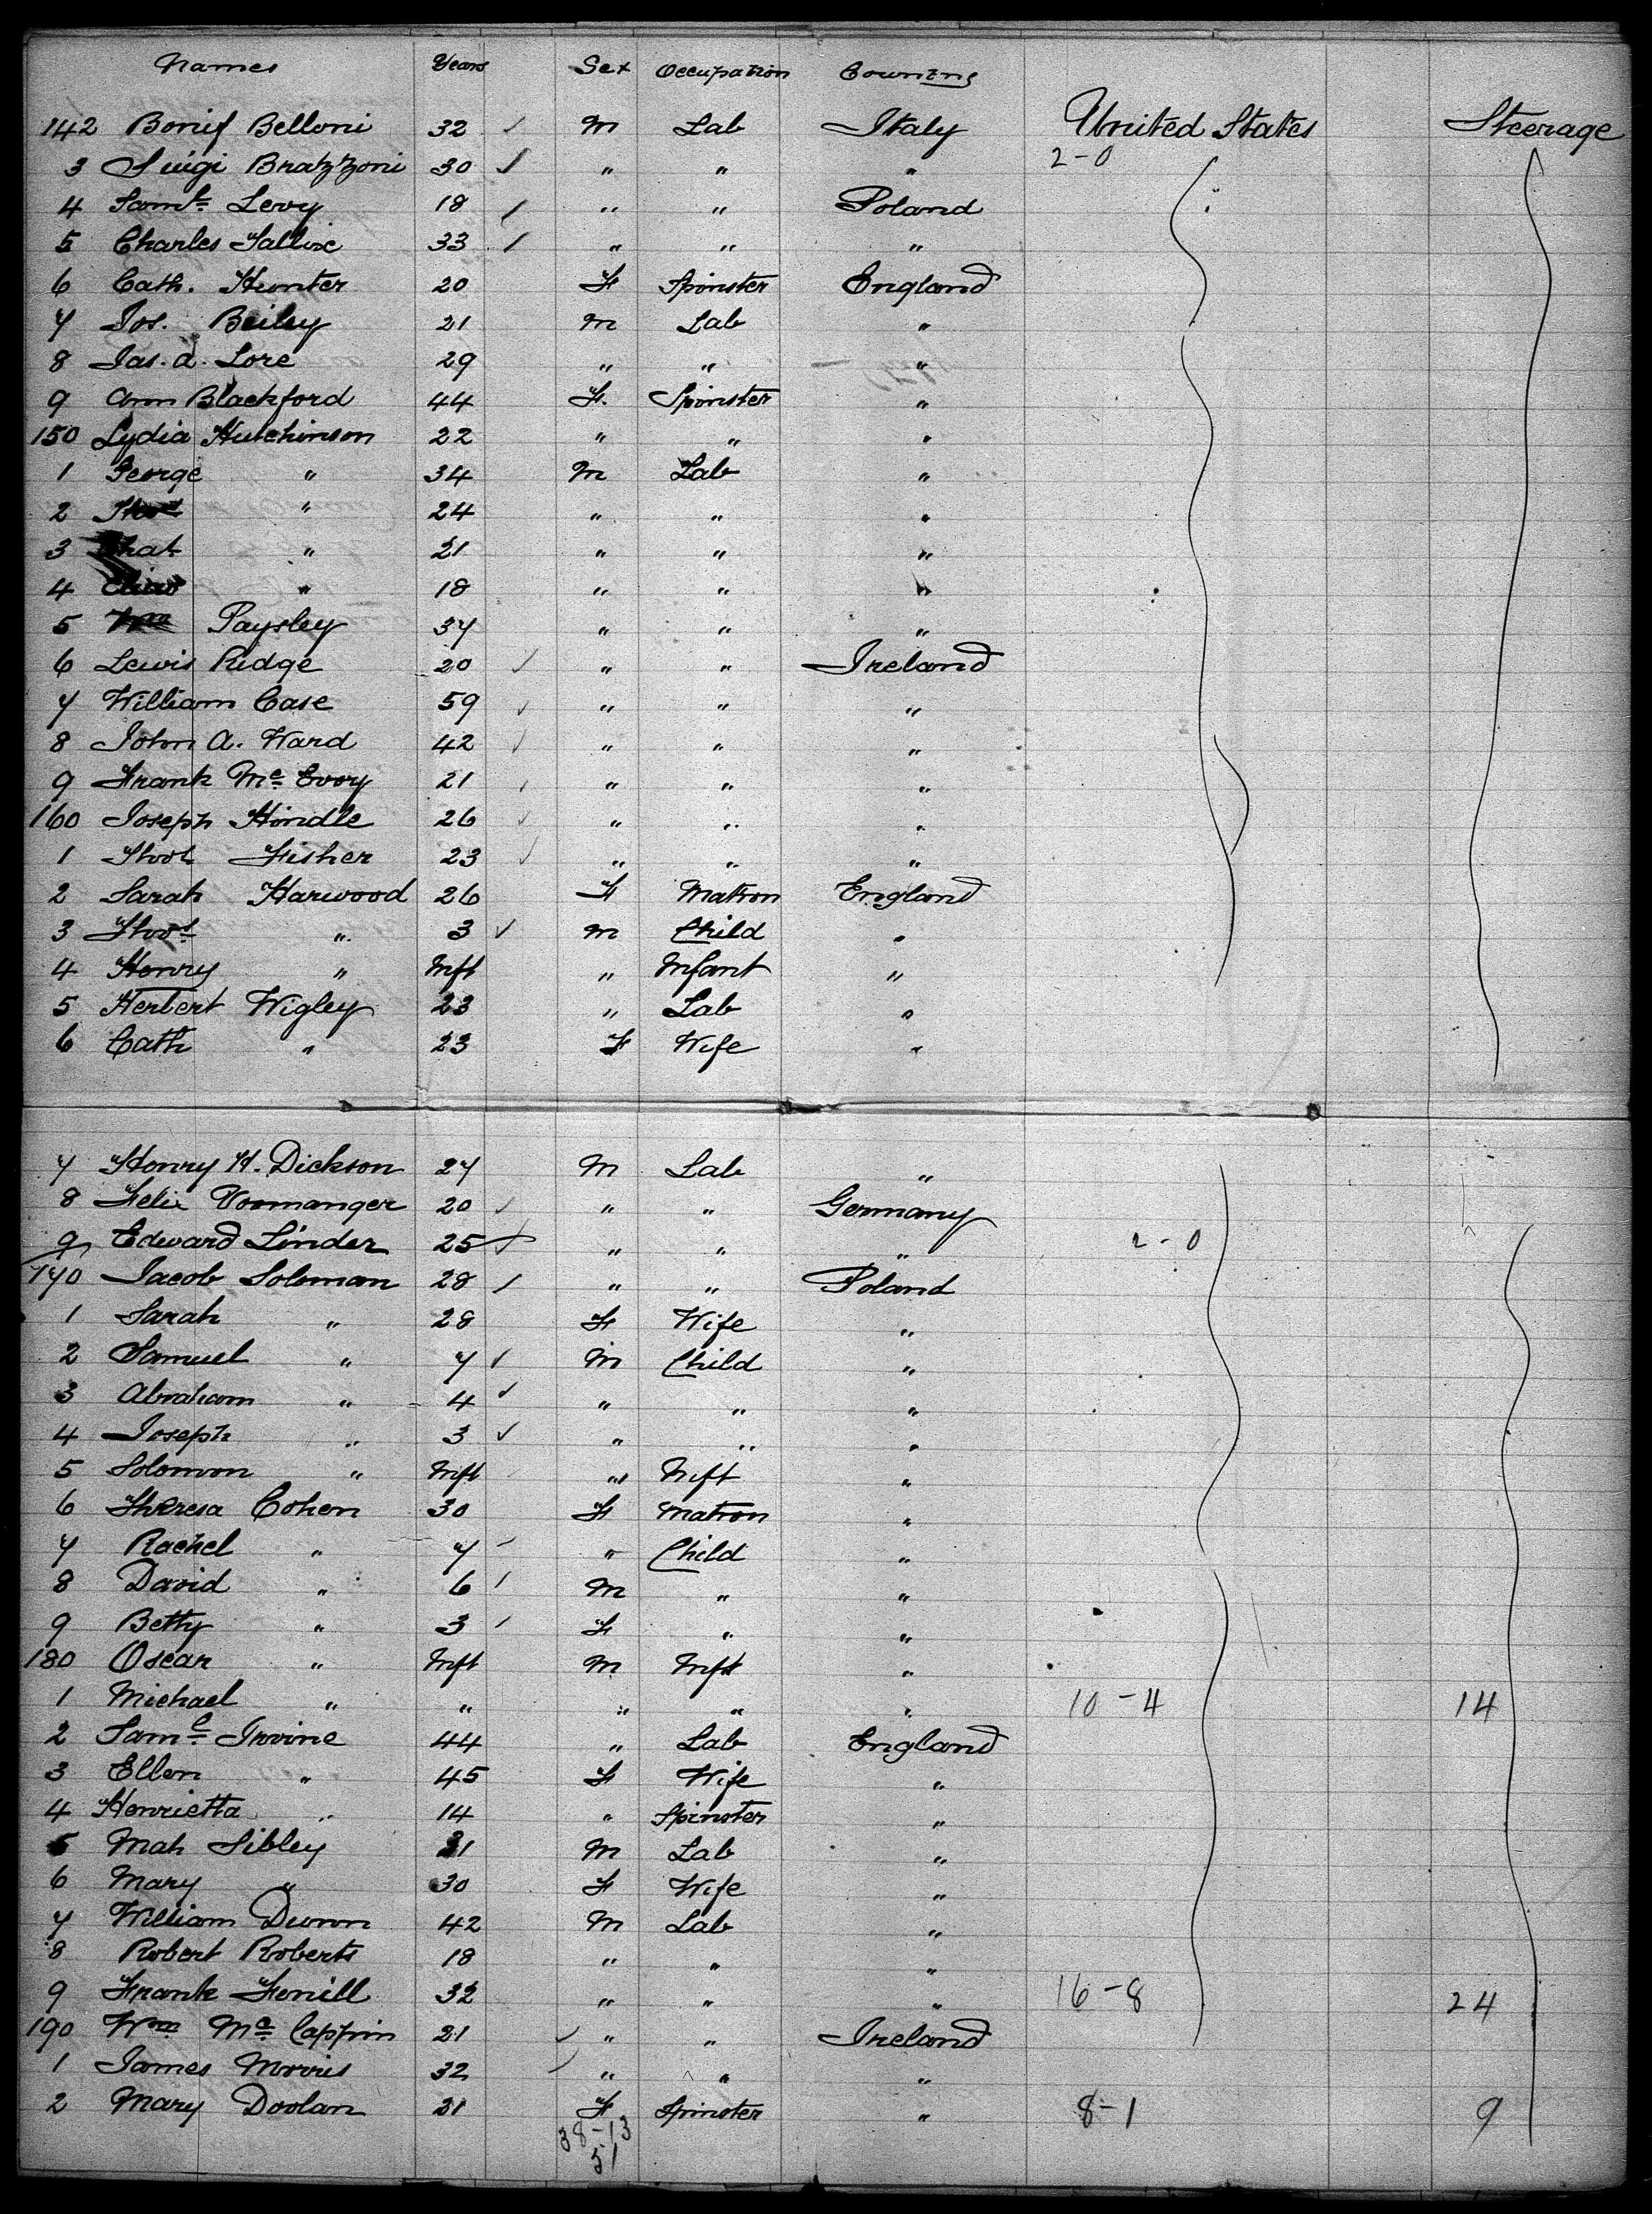 Names Years Sex Occupation Country
142 Bonif Belloni 32 ✓ M Lab Italy United States Steerage
3 Luigi Brazzoni 30 ✓ " " " 2-0
4 Saml Levy 18 ✓ " " Poland
5 Charles 33 ✓ " " "
6 Cath. Hunter 20 F Spinster England
7 Jos. Beiley 21 M Lab "
8 Jas. A. Lore 29 " " "
9 Ann Blackford 44 F. Spinster "
150 Lydia Hutchinson 22 " " "
1 George " 34 M Lab "
2 " 24 " " "
3 " 21 " " "
4 " 18 " " "
5 Wm Paysley 37 " " "
6 Lewis Ridge 20 ✓ " " Ireland
7 William Case 59 ✓ " " "
8 John A. Ward 42 ✓ " " "
9 Frank Mc Evoy 21 " " "
160 Joseph Hindle 26 ✓ " " "
1 Thos Fisher 23 ✓ " " "
2 Sarah Harwood 26 F Matron England
3 Thos " 3 ✓ M Child "
4 Henry " Inft " Infant "
5 Herbert Wigley 23 " Lab "
6 Cath " 23 F Wife "
7 Henry H. Dickson 27 M Lab "
8 Felix Vormanger 20 ✓ " " Germany
9 Edward Linder 25 ✓ " " " 2-0
170 Jacob Soloman 28 ✓ " " Poland
1 Sarah " 28 F Wife "
2 Samuel " 7 ✓ M Child "
3 Abraham " 4 ✓ " " "
4 Joseph " 3 ✓ " " "
5 Solomon " Inft " Inft "
6 Theresa Cohen 30 F Matron "
7 Rachel " 7 ✓ " Child "
8 David " 6 ✓ M " "
9 Betty " 3 ✓ F " "
180 Oscar " Inft M Inft "
1 Michael " " " " " 10-4 14
2 Saml Irvine 44 " Lab England
3 Ellen " 45 F Wife "
4 Henrietta " 14 " Spinster "
5 Mah Sibley 31 M Lab "
6 Mary " 30 F Wife "
7 William Dunn 42 M Lab "
8 Robert Roberts 18 " " "
9 Frank 32 " " " 16-8 24
190 Wm Mc Cappin 21 ✓ " " Ireland
1 James Morris 32 ✓ " " "
2 Mary Doolan 21 F Spinster " 8-1 9
38-13
51